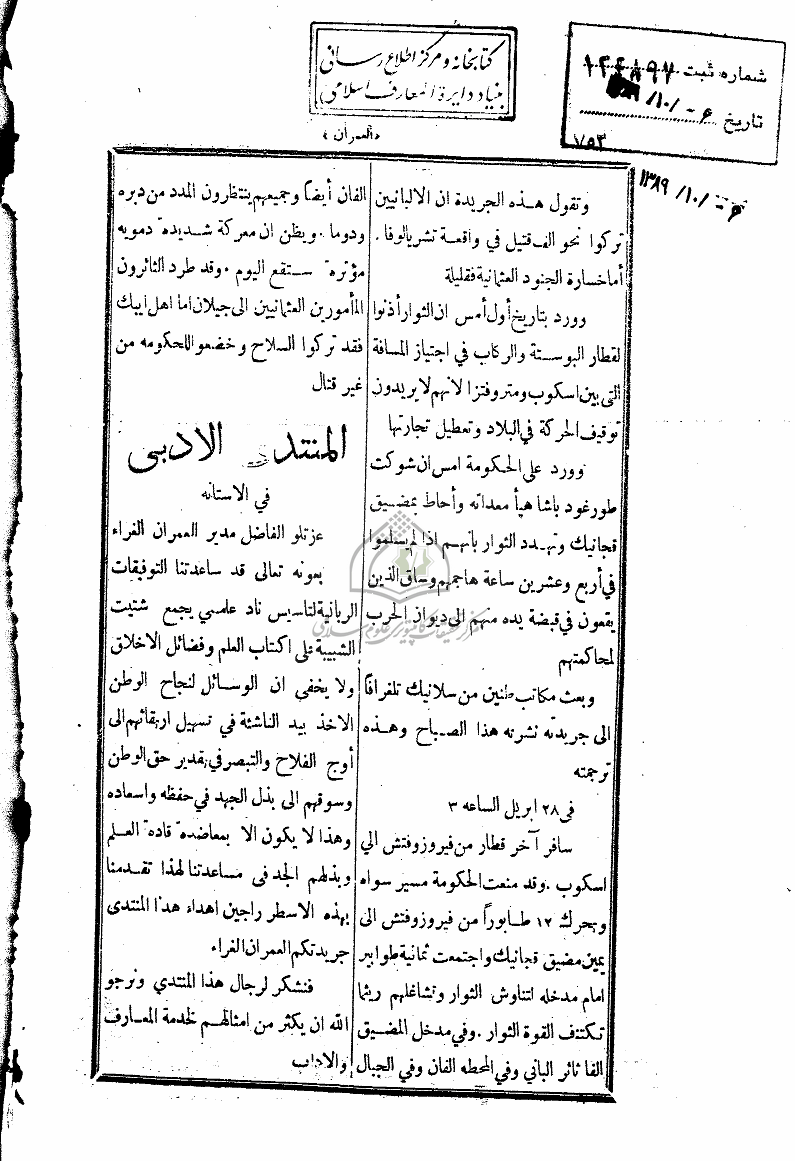 كتابخانه ومركز اطلاع رسانى
بنياد دايرة المعارف اسلامى
شماره ثبت ۱۲۴۸۹۷
تاريخ
۷۵۳
۱۳۸۹ /۱۰/ -۶
«العمران»
وتقول هذه الجريدة ان الالبانيين
تركوا نحو الف قتيل في واقعة تشريالوفا.
أما خسارة الجنود العثمانية فقليلة
وورد بتاريخ أول أمس ان الثوار أذنوا
لقطار البوستة والركاب في اجتياز المسافة
التى بين اسكوب ومتروفتزا لانهم لا يريدون
توقيف الحركة في البلاد وتعطيل تجارتها
وورد على الحكومة امس ان شوكت
طورغود باشا هيأ معداته وأحاط بمضيق
قجانيك وتهدد الثوار بأنهم اذا لم يسلموا
في أربع وعشرين ساعة هاجمهم وساق الذين
يقعون في قبضة يده منهم الى ديوان الحرب
لمحاكمتهم
وبعث مكاتب طنين من سلانيك تلغرافاً
الى جريدته نشرته هذا الصباح وهذه
ترجمته
فى ٢٨ ابريل الساعه ٣
سافر آخر قطار من فيروزوفتش الي
اسكوب. وقد منعت الحكومة مسير سواه
وتحرك ١٢ طابوراً من فيروزوفتش الى
يمين مضيق قجانيك واجتمعت ثمانية طوابير
امام مدخله لتناوش الثوار وتشاغلهم ريثما
تكتنف القوة الثوار. وفي مدخل المضيق
الفا ثائر الباني وفي المحطه الفان وفي الجبال
الفان أيضاً وجميعهم ينتظرون المدد من دبره
ودوما. ويظن ان معركة شديدة دمويه
مؤثرة ستقع اليوم. وقد طرد الثائرون
المأمورين العثمانيين الى جيلان اما اهل ايبك
فقد تركوا السلاح وخضعوا للحكومه من
غير قتال
المنتدى الادبى
في الاستانه
عزتلو الفاضل مدير العمران الغراء
بعونه تعالى قد ساعدتنا التوفيقات
الربانية لتاسيس ناد علمي يجمع شتيت
الشبيبة على اكتاب العلم وفضائل الاخلاق
ولا يخفى ان الوسائل لنجاح الوطن
الاخذ بيد الناشئة في تسهيل ارتقائهم الى
أوج الفلاح والتبصر في تقدير حق الوطن
وسوقهم الى بذل الجهد في حفظه واسعاده
وهذا لا يكون الا بمعاضدة قادة العلم
وبذلهم الجد فى مساعدتنا لهذا تقدمنا
بهذه الاسطر راجين اهداء هذا المنتدى
جريدتكم العمران الغراء
فنشكر لرجال هذا المنتدي ونرجو
الله ان يكثر من امثالهم لخدمة المعارف
والاداب